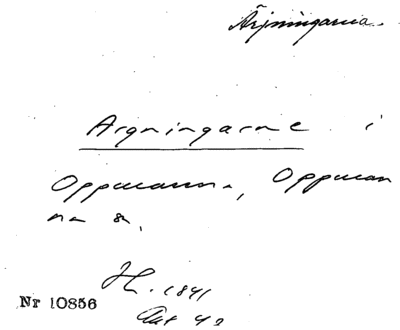 Ärjningarna.
Argningarne i
Oppmanna, Oppman
na sn,
1841
Nr 10856